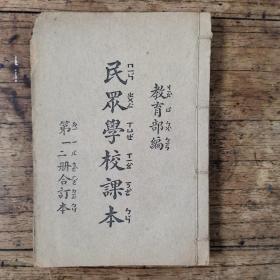 教育部編
民眾學校課本
第一二册合訂本